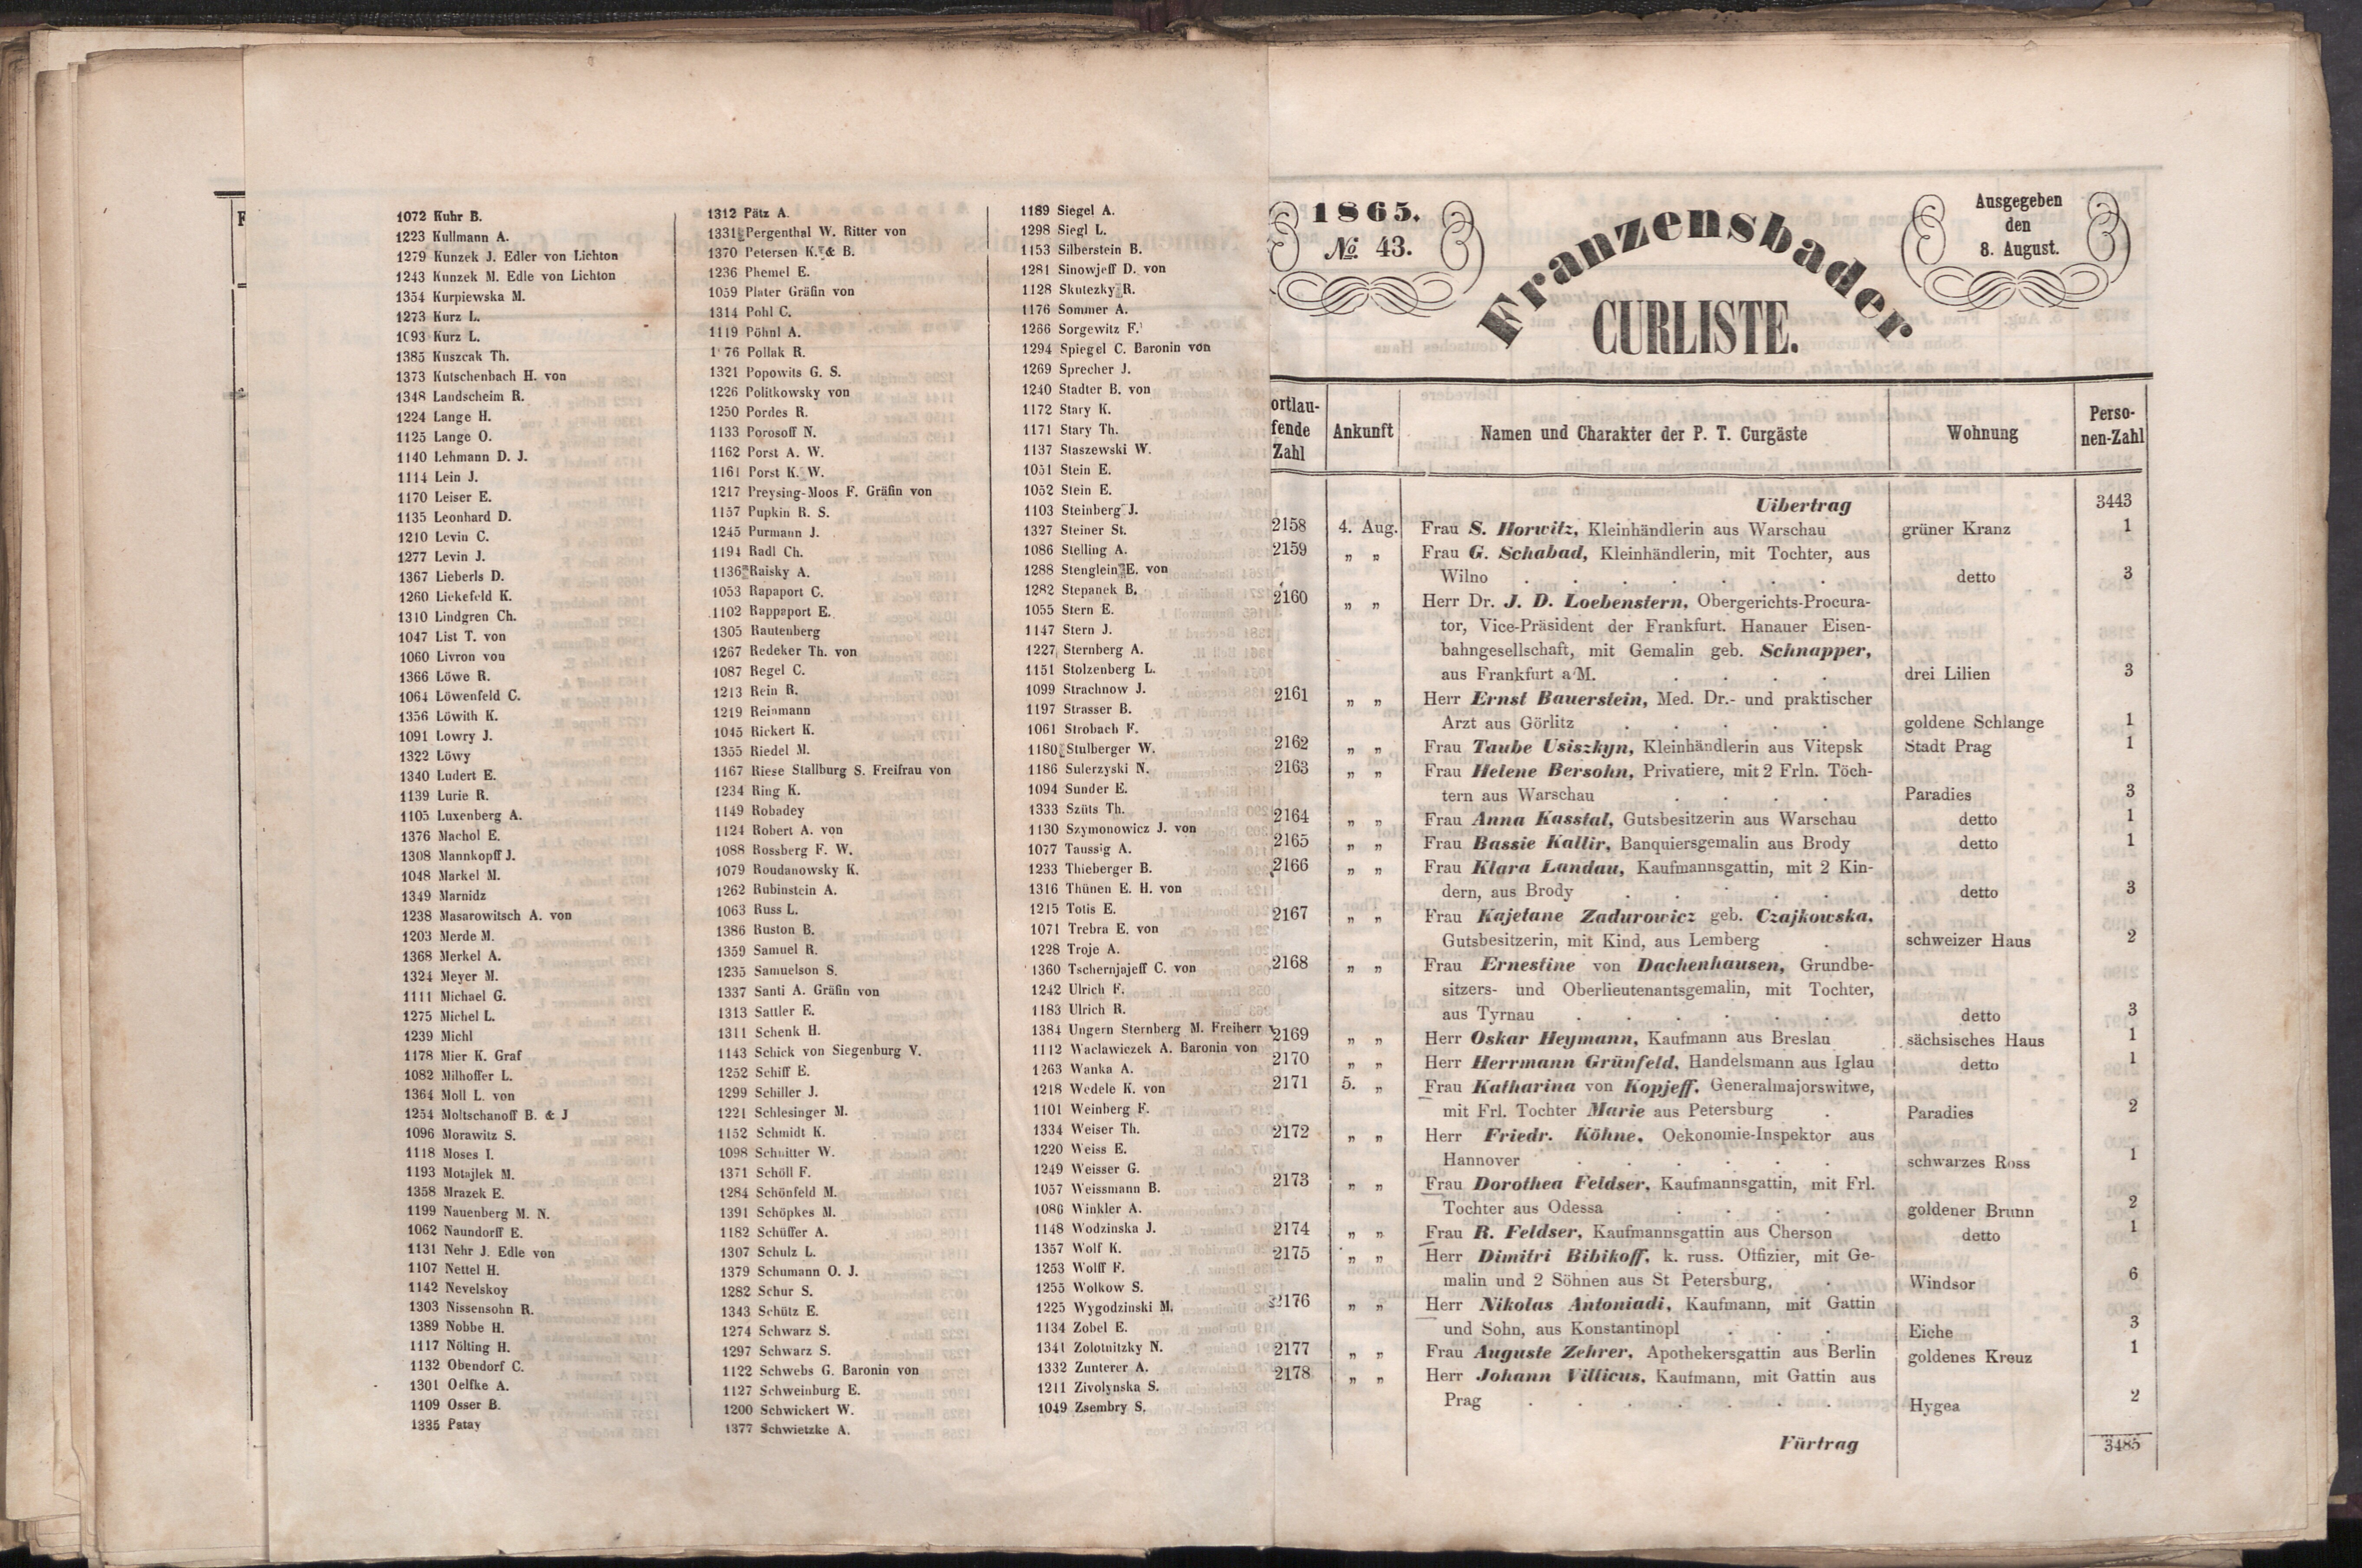 F
1072 Kuhr B.
1223 Kullmann A.
1279 Kunzek J. Edler von Lichton
1243 Kunzek M. Edle von Lichton
1354 Kurpiewska M.
1273 Kurz L.
1093 Kurz L.
1385 Kuszcak Th.
1373 Kutschenbach H. von
1348 Landscheim R.
1224 Lange H.
1125 Lange O.
1140 Lehmann D. J.
1114 Lein J.
1170 Leiser E.
1135 Leonhard D.
1210 Levin C.
1277 Levin J.
1367 Lieberls D.
1260 Liekefeld K.
1310 Lindgren Ch.
1047 List T. von
1060 Livron von
1366 Löwe R.
1064 Löwenfeld C.
1356 Löwith K.
1091 Lowry J.
1322 Löwy
1340 Ludert E.
1139 Lurie R.
1105 Luxenberg A.
1376 Machol E.
1308 Mannkopff J.
1048 Markel M.
1349 Marnidz
1238 Masarowitsch A. von
1203 Merde M.
1368 Merkel A.
1324 Meyer M.
1111 Michael G.
1275 Michel L.
1239 Michl
1178 Mier K. Graf
1082 Milhoffer L.
1364 Moll L. von
1254 Moltschanoff B. & J
1096 Morawitz S.
1118 Moses I.
1193 Motajlek M.
1358 Mrazek E.
1199 Nauenberg M. N.
1062 Naundorff E.
1131 Nehr J. Edle von
1107 Nettel H.
1142 Nevelskoy
1303 Nissensohn R.
1389 Nobbe H.
1117 Nölting H.
1132 Obendorf C.
1301 Oelfke A.
1109 Osser B.
1335 Patay
1312 Pätz A.
1331 Pergenthal W. Ritter von
1370 Petersen K. & B.
1236 Phemel E.
1059 Plater Gräfin von
1314 Pohl C.
1119 Pöhnl A.
1 76 Pollak R.
1321 Popowits G. S.
1226 Politkowsky von
1250 Pordes R.
1133 Porosoff N.
1162 Porst A. W.
1161 Porst K. W.
1217 Preysing-Moos F. Gräfin von
1157 Pupkin R. S.
1245 Purmann J.
1194 Radl Ch.
1136 Raisky A.
1053 Rapaport C.
1102 Rappaport E.
1305 Rautenberg
1267 Redeker Th. von
1087 Regel C.
1213 Rein R.
1219 Reinmann
1045 Rickert K.
1355 Riedel M.
1167 Riese Stallburg S. Freifrau von
1234 Ring K.
1149 Robadey
1124 Robert A. von
1088 Rossberg F. W.
1079 Roudanowsky K.
1262 Rubinstein A.
1063 Russ L.
1386 Ruston B.
1359 Samuel R.
1235 Samuelson S.
1337 Santi A. Gräfin von
1313 Sattler E.
1311 Schenk H.
1143 Schick von Siegenburg V.
1252 Schiff E.
1299 Schiller J.
1221 Schlesinger M.
1152 Schmidt K.
1098 Schnitter W.
1371 Schöll F.
1284 Schönfeld M.
1391 Schöpkes M.
1182 Schüffer A.
1307 Schulz L.
1379 Schumann O. J.
1282 Schur S.
1343 Schütz E.
1274 Schwarz S.
1297 Schwarz S.
1122 Schwebs G. Baronin von
1127 Schweinburg E.
1200 Schwickert W.
1377 Schwietzke A.
1189 Siegel A.
1298 Siegl L.
1153 Silberstein B.
1281 Sinowjeff D. von
1128 Skutezky R.
1176 Sommer A.
1266 Sorgewitz F.
1294 Spiegel C. Baronin von
1269 Sprecher J.
1240 Stadter B. von
1172 Stary K.
1171 Stary Th.
1137 Staszewski W.
1051 Stein E.
1052 Stein E.
1103 Steinberg J.
1327 Steiner St.
1086 Stelling A.
1288 Stenglein E. von
1282 Stepanek B.
1055 Stern E.
1147 Stern J.
1227 Sternberg A.
1151 Stolzenberg L.
1099 Strachnow J.
1197 Strasser B.
1061 Strobach F.
1180 Stulberger W.
1186 Sulerzyski N.
1094 Sunder E.
1333 Szüts Th.
1130 Szymonowicz J. von
1077 Taussig A.
1233 Thieberger B.
1316 Thünen E. H. von
1215 Totis E.
1071 Trebra E. von
1228 Troje A.
1360 Tschernjajeff C. von
1242 Ulrich F.
1183 Ulrich R.
1384 Ungern Sternberg M. Freiherr v
1112 Waclawiczek A. Baronin von
1263 Wanka A.
1218 Wedele K. von
1101 Weinberg F.
1334 Weiser Th.
1220 Weiss E.
1249 Weisser G.
1057 Weissmann B.
1086 Winkler A.
1148 Wodzinska J.
1357 Wolf K.
1253 Wolff F.
1255 Wolkow S.
1225 Wygodzinski M.
1134 Zobel E.
1341 Zolotnitzky N.
1332 Zunterer A.
1211 Zivolynska S.
1049 Zsembry S.
1865.
№ 43.
Franzensbader
CURLISTE.
Ausgegeben
den
8. August.
ortlau-
fende
Zahl
Ankunft
Namen und Charakter der P. T. Curgäste
Wohnung
Perso-
nen-Zahl
Uibertrag 3443
2158 4. Aug. Frau S. Horwitz, Kleinhändlerin aus Warschau grüner Kranz 1
2159 „ „ Frau G. Schabad, Kleinhändlerin, mit Tochter, aus
Wilno . . . . . . . detto 3
2160 „ „ Herr Dr. J. D. Loebenstern, Obergerichts-Procura-
tor, Vice-Präsident der Frankfurt. Hanauer Eisen-
bahngesellschaft, mit Gemalin geb. Schnapper,
aus Frankfurt a/M. . . . . drei Lilien 3
2161 „ „ Herr Ernst Bauerstein, Med. Dr.- und praktischer
Arzt aus Görlitz . . . . . goldene Schlange 1
2162 „ „ Frau Taube Usiszkyn, Kleinhändlerin aus Vitepsk Stadt Prag 1
2163 „ „ Frau Helene Bersohn, Privatiere, mit 2 Frln. Töch-
tern aus Warschau . . . . Paradies 3
2164 „ „ Frau Anna Kasstal, Gutsbesitzerin aus Warschau detto 1
2165 „ „ Frau Bassie Kallir, Banquiersgemalin aus Brody detto 1
2166 „ „ Frau Klara Landau, Kaufmannsgattin, mit 2 Kin-
dern, aus Brody . . . . . detto 3
2167 „ „ Frau Kajetane Zadurowicz geb. Czajkowska,
Gutsbesitzerin, mit Kind, aus Lemberg . schweizer Haus 2
2168 „ „ Frau Ernestine von Dachenhausen, Grundbe-
sitzers- und Oberlieutenantsgemalin, mit Tochter,
aus Tyrnau . . . . . . detto 3
2169 „ „ Herr Oskar Heymann, Kaufmann aus Breslau sächsisches Haus 1
2170 „ „ Herr Herrmann Grünfeld, Handelsmann aus Iglau detto 1
2171 5. „ Frau Katharina von Kopjeff, Generalmajorswitwe,
mit Frl. Tochter Marie aus Petersburg . Paradies 2
2172 „ „ Herr Friedr. Köhne, Oekonomie-Inspektor aus
Hannover . . . . . . schwarzes Ross 1
2173 „ „ Frau Dorothea Feldser, Kaufmannsgattin, mit Frl.
Tochter aus Odessa . . . . goldener Brunn 2
2174 „ „ Frau R. Feldser, Kaufmannsgattin aus Cherson detto 1
2175 „ „ Herr Dimitri Bibikoff, k. russ. Offizier, mit Ge-
malin und 2 Söhnen aus St Petersburg, . Windsor 6
2176 „ „ Herr Nikolas Antoniadi, Kaufmann, mit Gattin
und Sohn, aus Konstantinopl . . . Eiche 3
2177 „ „ Frau Auguste Zehrer, Apothekersgattin aus Berlin goldenes Kreuz 1
2178 „ „ Herr Johann Villicus, Kaufmann, mit Gattin aus
Prag . . . . . . . Hygea 2
Fürtrag 3485